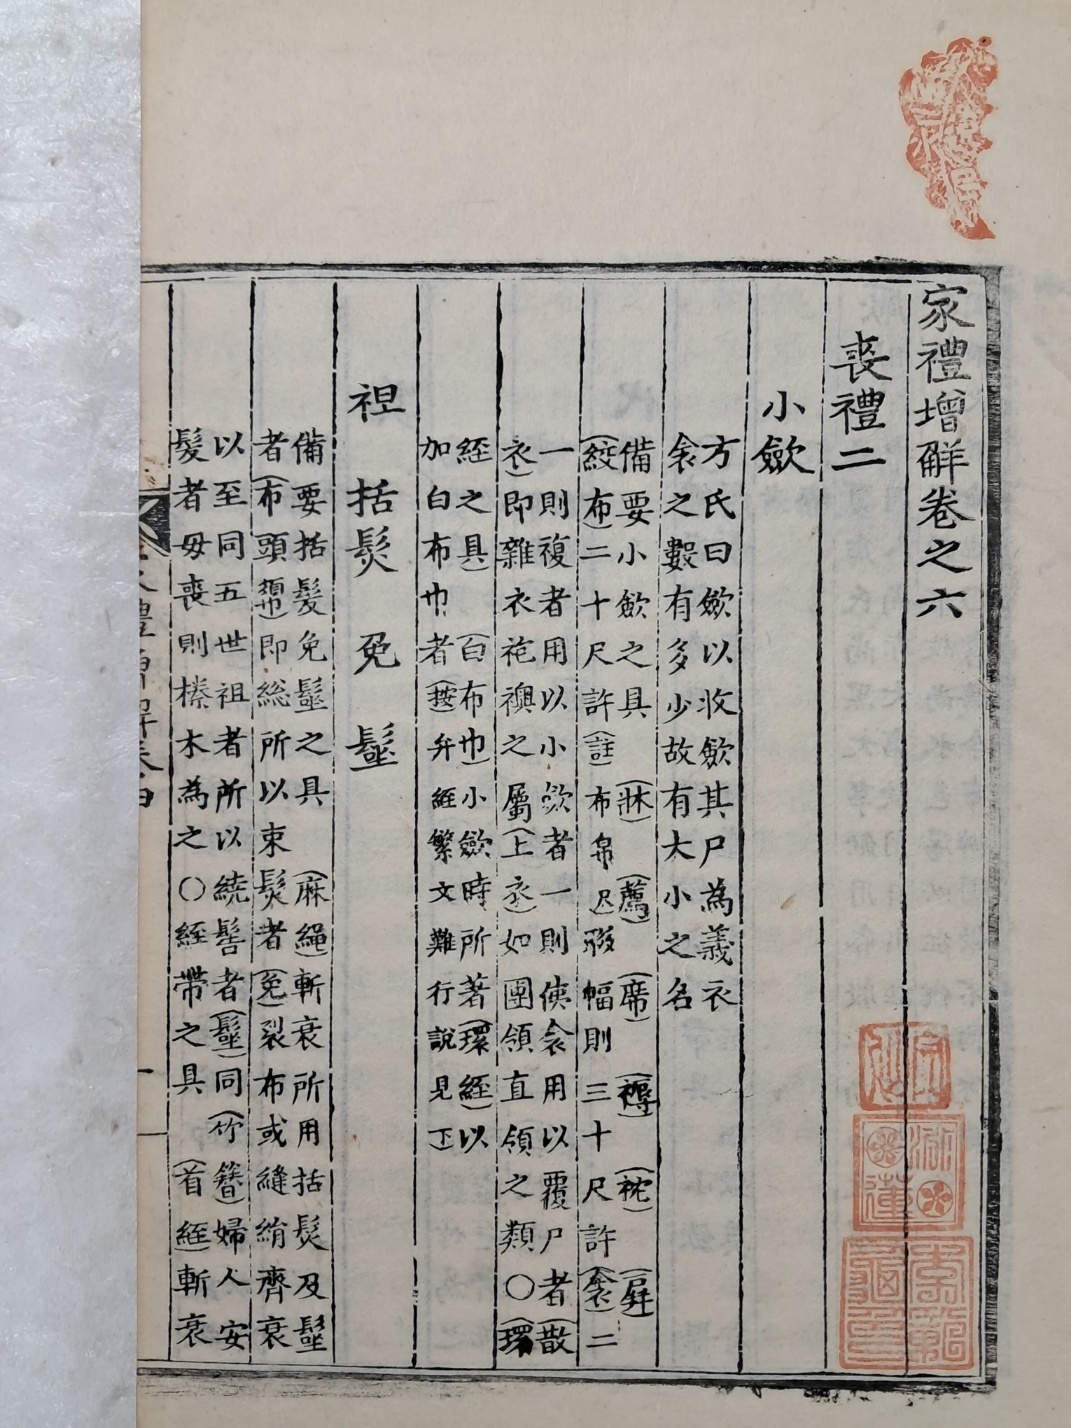 家禮增解卷之六
喪禮二
小斂
方氏曰斂以收斂其尸為義衣
衾之數有多少故有大小之名
備要小斂之具（牀）（薦）（席）（褥）（枕）（屛）
（絞布）二十尺許（註）布帛尺幅則三十尺許（衾）二
一則複者用以小斂者一則俠衾用以覆尸者（散
衣）即雜衣袍襖之屬（上衣）如團領直領之類〇（環
絰之具）（白布巾）小斂時所著（環絰）以
加白布巾者（按）弁絰繁文難行說見下
袒 括髮 免 髽
備要括髮免髽之具（麻繩）斬衰所用括髮及髽
者（布頭𢄼）即總所以束髮者（免）裂布或縫絹齊衰
以至同五世祖者所以繞髻者（髽）同（竹簪）婦人安
髮者毋喪則榛木為之〇絰帶之具（首絰）斬衰